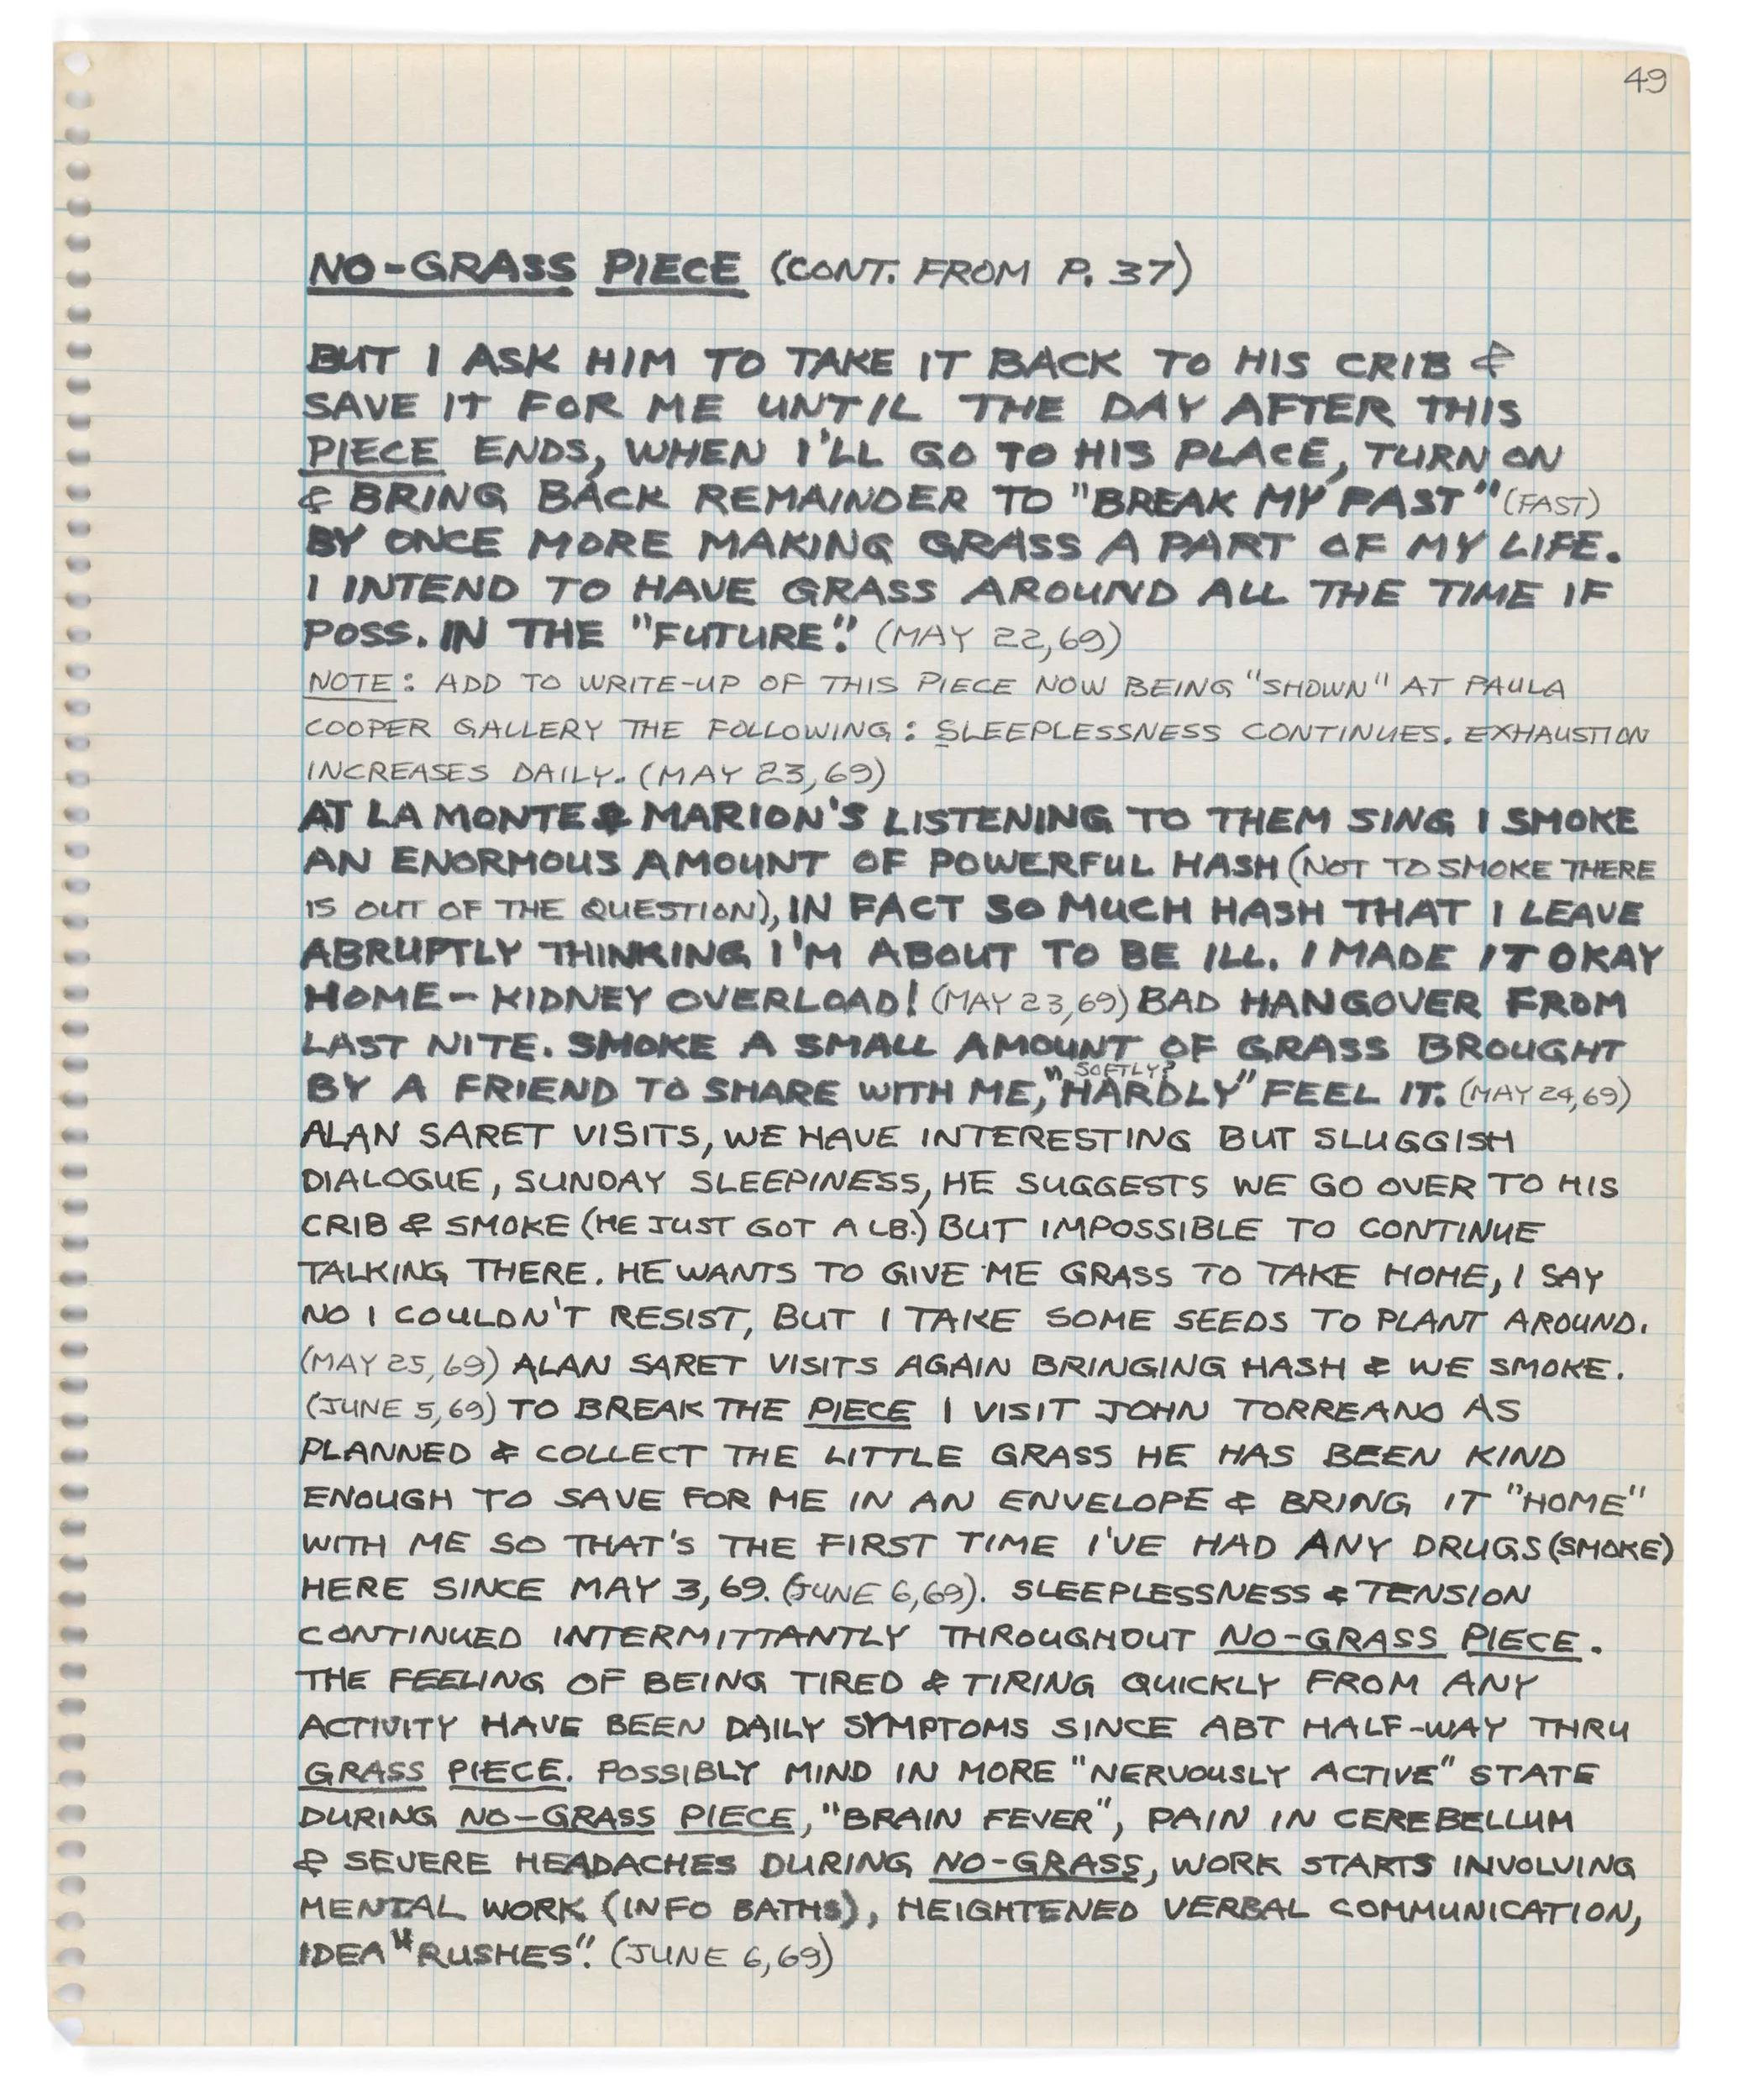 49
NO-GRASS PIECE (CONT. FROM P. 37)
BUT I ASK HIM TO TAKE IT BACK TO HIS CRIB &
SAVE IT FOR ME UNTIL THE DAY AFTER THIS
PIECE ENDS, WHEN I'LL GO TO HIS PLACE, TURN ON
& BRING BACK REMAINDER TO "BREAK MY PAST" (FAST)
BY ONCE MORE MAKING GRASS A PART OF MY LIFE.
I INTEND TO HAVE GRASS AROUND ALL THE TIME IF
POSS. IN THE "FUTURE". (MAY 22,69)
NOTE: ADD TO WRITE-UP OF THIS PIECE NOW BEING "SHOWN" AT PAULA
COOPER GALLERY THE FOLLOWING: SLEEPLESSNESS CONTINUES. EXHAUSTION
INCREASES DAILY. (MAY 23,69)
AT LA MONTE & MARION'S LISTENING TO THEM SING I SMOKE
AN ENORMOUS AMOUNT OF POWERFUL HASH (NOT TO SMOKE THERE
IS OUT OF THE QUESTION), IN FACT SO MUCH HASH THAT I LEAVE
ABRUPTLY THINKING I'M ABOUT TO BE ILL. I MADE IT OKAY
HOME - KIDNEY OVERLOAD! (MAY 23,69) BAD HANGOVER FROM
LAST NITE. SMOKE A SMALL AMOUNT OF GRASS BROUGHT
SOFTLY?
BY A FRIEND TO SHARE WITH ME, "HARDLY" FEEL IT. (MAY 24,69)
ALAN SARET VISITS, WE HAVE INTERESTING BUT SLUGGISH
DIALOGUE, SUNDAY SLEEPINESS, HE SUGGESTS WE GO OVER TO HIS
CRIB & SMOKE (HE JUST GOT A LB.) BUT IMPOSSIBLE TO CONTINUE
TALKING THERE. HE WANTS TO GIVE ME GRASS TO TAKE HOME, I SAY
NO I COULDN'T RESIST, BUT I TAKE SOME SEEDS TO PLANT AROUND.
(MAY 25,69) ALAN SARET VISITS AGAIN BRINGING HASH & WE SMOKE.
(JUNE 5,69) TO BREAK THE PIECE I VISIT JOHN TORREANO AS
PLANNED & COLLECT THE LITTLE GRASS HE HAS BEEN KIND
ENOUGH TO SAVE FOR ME IN AN ENVELOPE & BRING IT "HOME"
WITH ME SO THAT'S THE FIRST TIME I'VE HAD ANY DRUGS (SMOKE)
HERE SINCE MAY 3,69. (JUNE 6,69). SLEEPLESSNESS & TENSION
CONTINUED INTERMITTANTLY THROUGHOUT NO-GRASS PIECE.
THE FEELING OF BEING TIRED & TIRING QUICKLY FROM ANY
ACTIVITY HAVE BEEN DAILY SYMPTOMS SINCE ABT HALF-WAY THRU
GRASS PIECE. POSSIBLY MIND IN MORE "NERVOUSLY ACTIVE" STATE
DURING NO-GRASS PIECE, "BRAIN FEVER", PAIN IN CEREBELLUM
& SEVERE HEADACHES DURING NO-GRASS, WORK STARTS INVOLVING
MENTAL WORK (INFO BATHS), HEIGHTENED VERBAL COMMUNICATION,
IDEA "RUSHES". (JUNE 6,69)